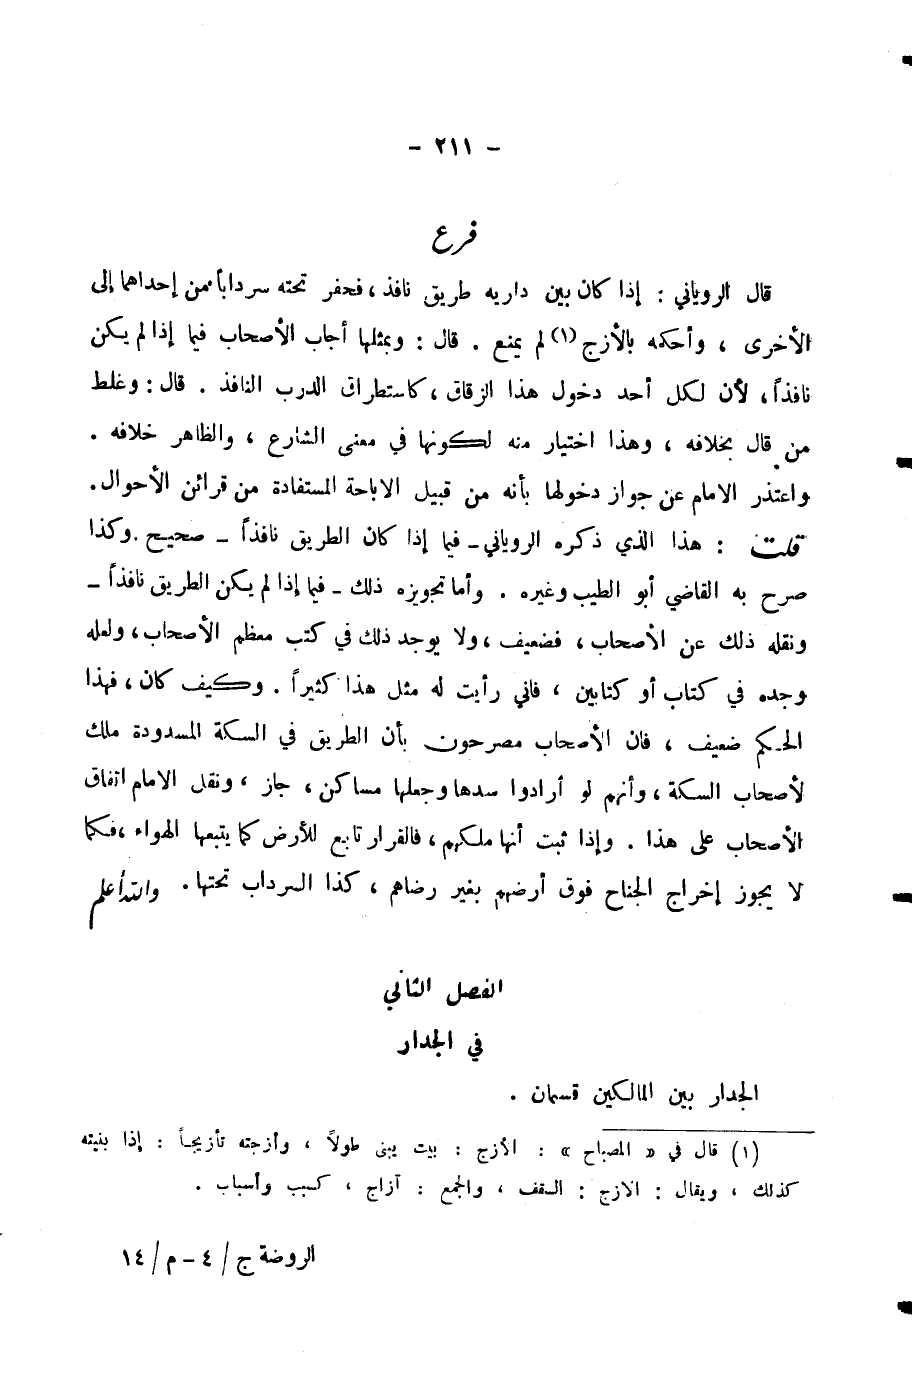 - ٢١١ -
فرع
قال الروياني : إذا كان بين داريه طريق نافذ ، فحفر تحته سرداباً من إحداهما إلى
الأخرى ، وأحكمه بالأزج (١) لم يمنع . قال : وبمثلها أجاب الأصحاب فيما إذا لم يكن
نافذاً ، لأن لكل أحد دخول هذا الزقاق ، كاستطراق الدرب النافذ . قال : وغلط
من قال بخلافه ، وهذا اختيار منه لكونها في معنى الشارع ، والظاهر خلافه .
واعتذر الامام عن جواز دخولها بأنه من قبيل الاباحة المستفادة من قرائن الأحوال .
قلت : هذا الذي ذكره الروياني ـ فيما إذا كان الطريق نافذاً ـ صحيح . وكذا
صرح به القاضي أبو الطيب وغيره . وأما تجويزه ذلك ـ فيما إذا لم يكن الطريق نافذاً ـ
ونقله ذلك عن الأصحاب ، فضعيف ، ولا يوجد ذلك في كتب معظم الأصحاب ، ولعله
وجده في كتاب أو كتابين ، فاني رأيت له مثل هذا كثيراً . وكيف كان ، فهذا
الحكم ضعيف ، فان الأصحاب مصرحون بأن الطريق في السكة المسدودة ملك
لأصحاب السكة ، وأنهم لو أرادوا سدها وجعلها مساكن ، جاز ، ونقل الامام اتفاق
الأصحاب على هذا . وإذا ثبت أنها ملكهم ، فالقرار تابع للأرض كما يتبعها الهواء ، فكما
لا يجوز إخراج الجناح فوق أرضهم بغير رضاهم ، كذا السرداب تحتها . والله أعلم
الفصل الثاني
في الجدار
الجدار بين المالكين قسمان .
(١) قال في « المصباح » : الأزج : بيت يبنى طولاً ، وأزجته تأزيجاً : إذا بنيته
كذلك ، ويقال : الازج : السقف ، والجمع : آزاج ، كسبب وأسباب .
الروضة ج / ٤ - م / ١٤